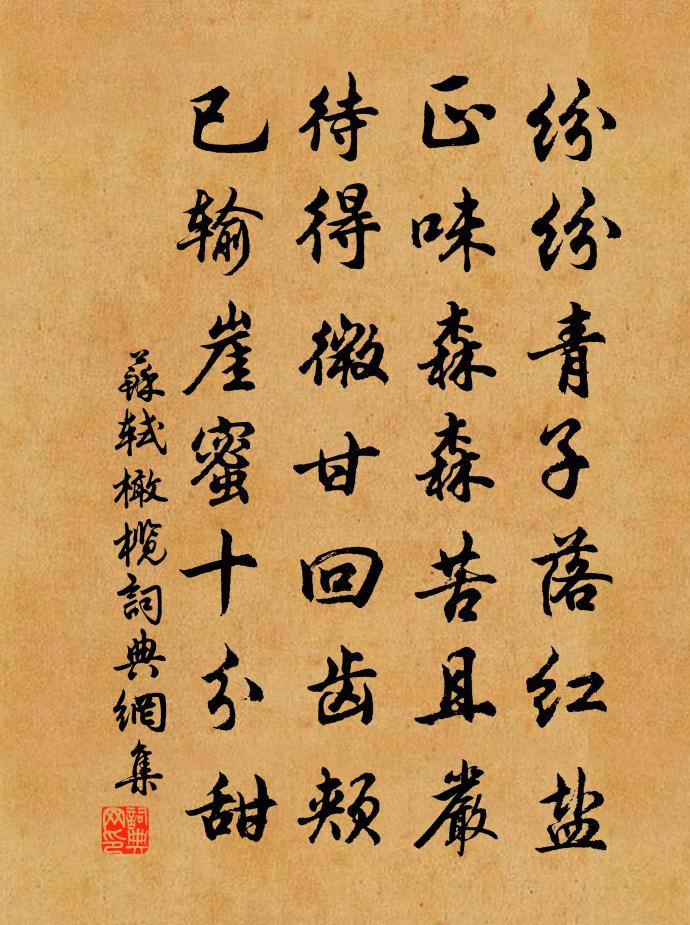 纷纷青子落红盐
正味森森苦且严
待得微甘回齿颊
已输崖蜜十分甜
蘇轼橄榄詞典網集
詞典网印